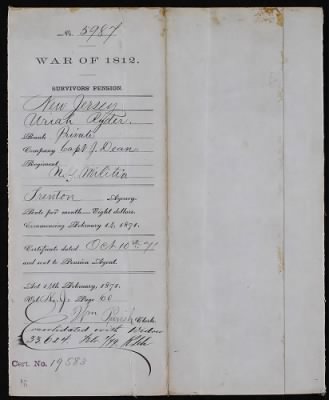 No. 5987
WAR OF 1812.
SURVIVORS PENSION.
New Jersey
Uriah Ryder.
Rank Private
Company Capt. J. Dean
Regiment
N.Y. Militia
Trenton Agency.
Rate per month—Eight dollars.
Commencing February 14, 1871.
Certificate dated Oct 10th 71
and sent to Pension Agent.
Act 14th February, 1871.
Vol. Page 60
Wm Clerk.
consolidated with Widow
33,604
Cert. No. 19583